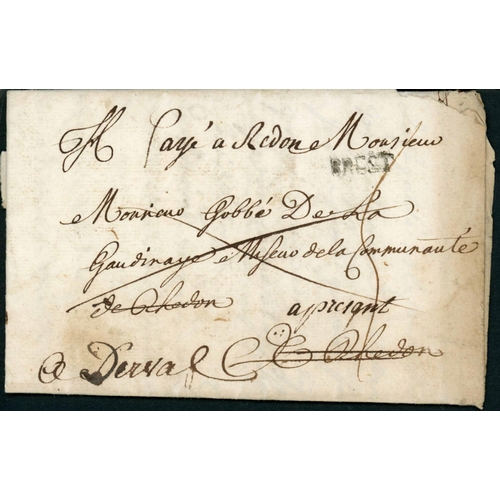 Payé a Redon Monsieur
BREST
Monsieur Gobbé De La
Gaudinaye Miseur de la Communauté
de Rhedon apresant
a Derval A Rhedon